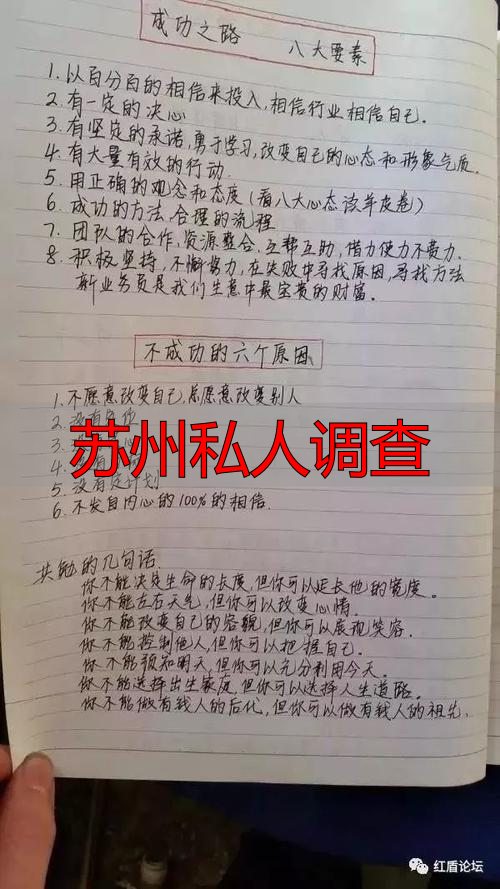 成功之路 八大要素
1. 以百分百的相信来投入,相信行业相信自己.
2. 有一定的决心
3. 有坚定的承诺,勇于学习,改变自己的心态和形象气质.
4. 有大量有效的行动.
5. 用正确的观念和态度(看八大心态读羊皮卷)
6. 成功的方法、合理的流程
7. 团队的合作,资源整合.互帮互助,借力使力不费力.
8. 积极坚持,不懈努力,在失败中寻找原因,寻找方法
新业务员是我们生意中最宝贵的财富.
不成功的六个原因
1. 不愿意改变自己,总愿意改变别人
2. 没有
3.
4.
苏州私人调查
5. 没有 计划
6. 不发自内心的100%的相信.
共勉的几句话
你不能决定生命的长度,但你可以延长他的宽度。
你不能左右天气,但你可以改变心情.
你不能改变自己的容貌,但你可以展现笑容.
你不能控制他人,但你可以把握自己.
你不能预知明天,但你可以充分利用今天.
你不能选择出生家庭,但你可以选择人生道路.
你不能做有钱人的后代,但你可以做有钱人的祖先.
红盾论坛